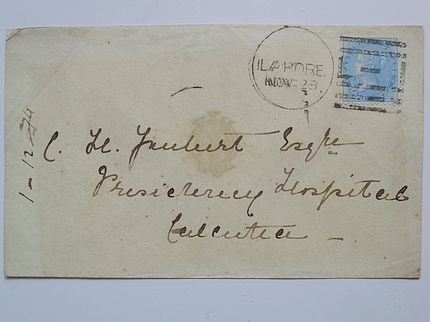 LAHORE
NOV 28
C. H. Joubert Esqre
Presidency Hospital
Calcutta
1-12-74